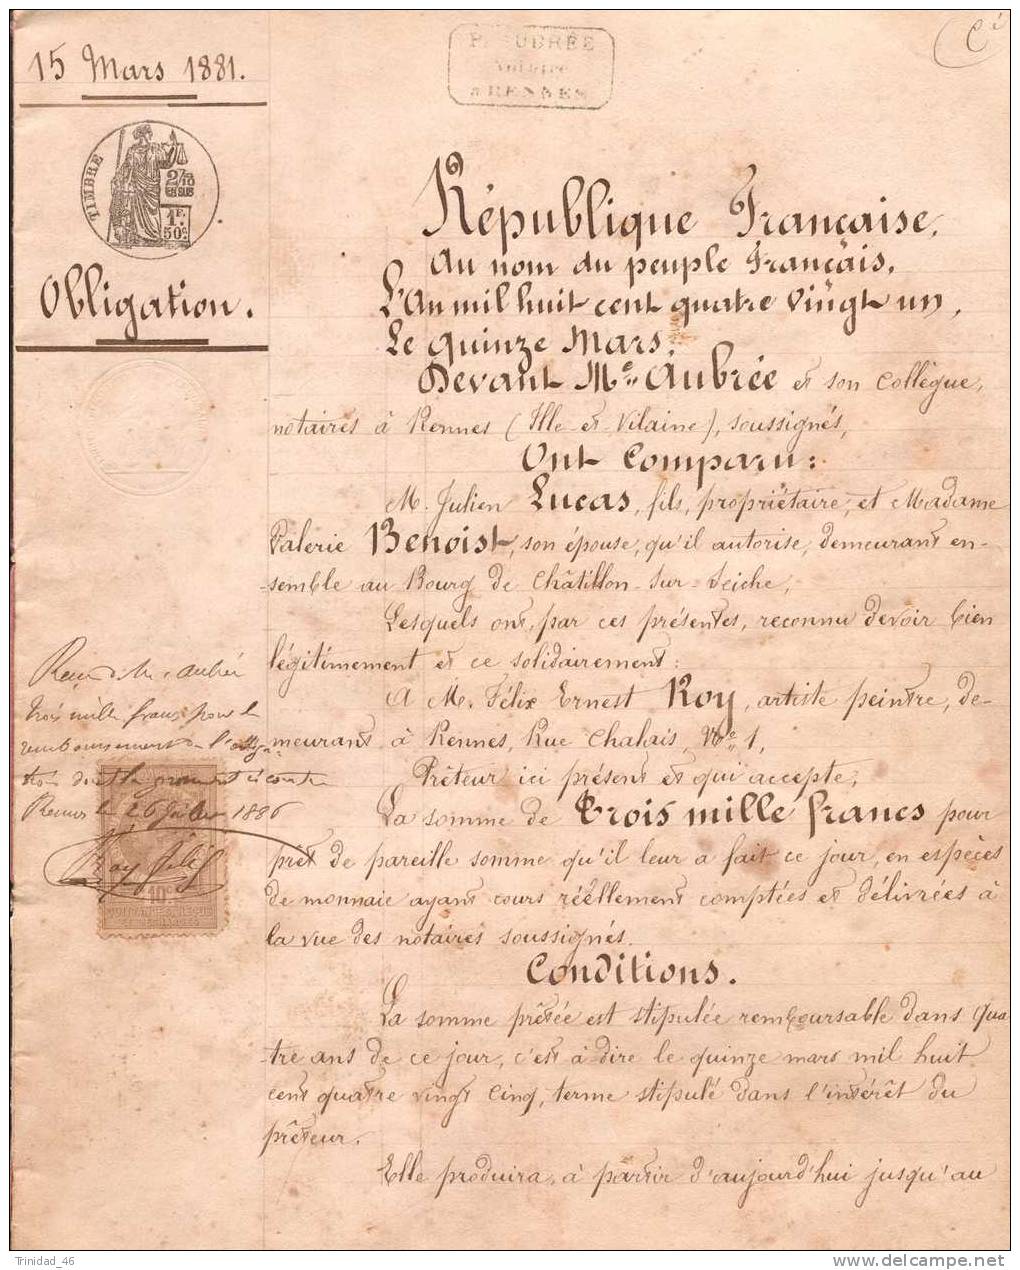 15 Mars 1881.
AUBRÉE
Notaire
à RENNES
TIMBRE
2/10
EN SUS
1F
50c
Obligation.
République Française.
Au nom du peuple Français.
L'An mil huit cent quatre vingt un,
Le quinze Mars.
Devant Me Aubrée et son collègue,
notaires à Rennes (Ille et Vilaine), soussignés,
Ont Comparu:
M. Julien Lucas, fils, propriétaire, et Madame
Valerie Benoist, son épouse, qu'il autorise, demeurant en-
-semble au Bourg de Châtillon-sur-Seiche,
Lesquels ont, par ces présentes, reconnu devoir bien
légitimement et ce solidairement:
A M. Félix Ernest Roy, artiste peintre, de-
meurant à Rennes, Rue Chalais, No 1,
Prêteur ici présent et qui accepte;
La somme de Trois mille francs pour
prêt de pareille somme qu'il leur a fait ce jour, en espèces
de monnaie ayant cours réellement comptées et délivrées à
la vue des notaires soussignés.
Conditions.
La somme prêtée est stipulée remboursable dans qua
-tre ans de ce jour, c'est à dire le quinze mars mil huit
cent quatre vingt cinq, terme stipulé dans l'intérêt du
prêteur.
Elle produira, à partir d'aujourd'hui jusqu'au
Reçu de Me Aubrée
trois mille francs pour le
remboursement de l'obliga
tion dont la grosse est ci contre
Rennes le 26 1886
Roy Félix
10c
Trinidad_46
www.delcampe.net